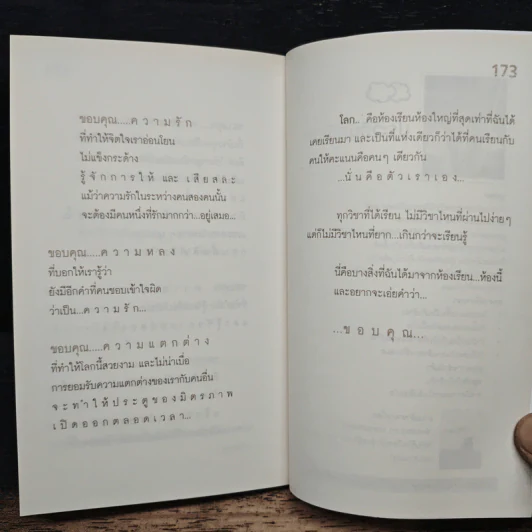 ขอบคุณ.....ค ว า ม รั ก
ที่ทำให้จิตใจเราอ่อนโยน
ไม่แข็งกระด้าง
รู้ จั ก ก า ร ใ ห้ และ เ สี ย ส ล ะ
แม้ว่าความรักในระหว่างคนสองคนนั้น
จะต้องมีคนหนึ่งที่รักมากกว่า...อยู่เสมอ...
ขอบคุณ.....ค ว า ม ห ล ง
ที่บอกให้เรารู้ว่า
ยังมีอีกคำที่คนชอบเข้าใจผิด
ว่าเป็น...ค ว า ม รั ก...
ขอบคุณ.....ค ว า ม แ ต ก ต่ า ง
ที่ทำให้โลกนี้สวยงาม และไม่น่าเบื่อ
การยอมรับความแตกต่างของเรากับคนอื่น
จ ะ ท ำ ใ ห้ ป ร ะ ตู ข อ ง มิ ต ร ภ า พ
เ ปิ ด อ อ ก ต ล อ ด เ ว ล า...
173
โลก.. คือห้องเรียนห้องใหญ่ที่สุดเท่าที่ฉันได้
เคยเรียนมา และเป็นที่แห่งเดียวก็ว่าได้ที่คนเรียนกับ
คนให้คะแนนคือคนๆ เดียวกัน
...นั่ น คื อ ตั ว เ ร า เ อ ง...
ทุกวิชาที่ได้เรียน ไม่มีวิชาไหนที่ผ่านไปง่ายๆ
แต่ก็ไม่มีวิชาไหนที่ยาก...เกินกว่าจะเรียนรู้
นี่คือบางสิ่งที่ฉันได้มาจากห้องเรียน...ห้องนี้
และอยากจะเอ่ยคำว่า...
...ข อ บ คุ ณ...